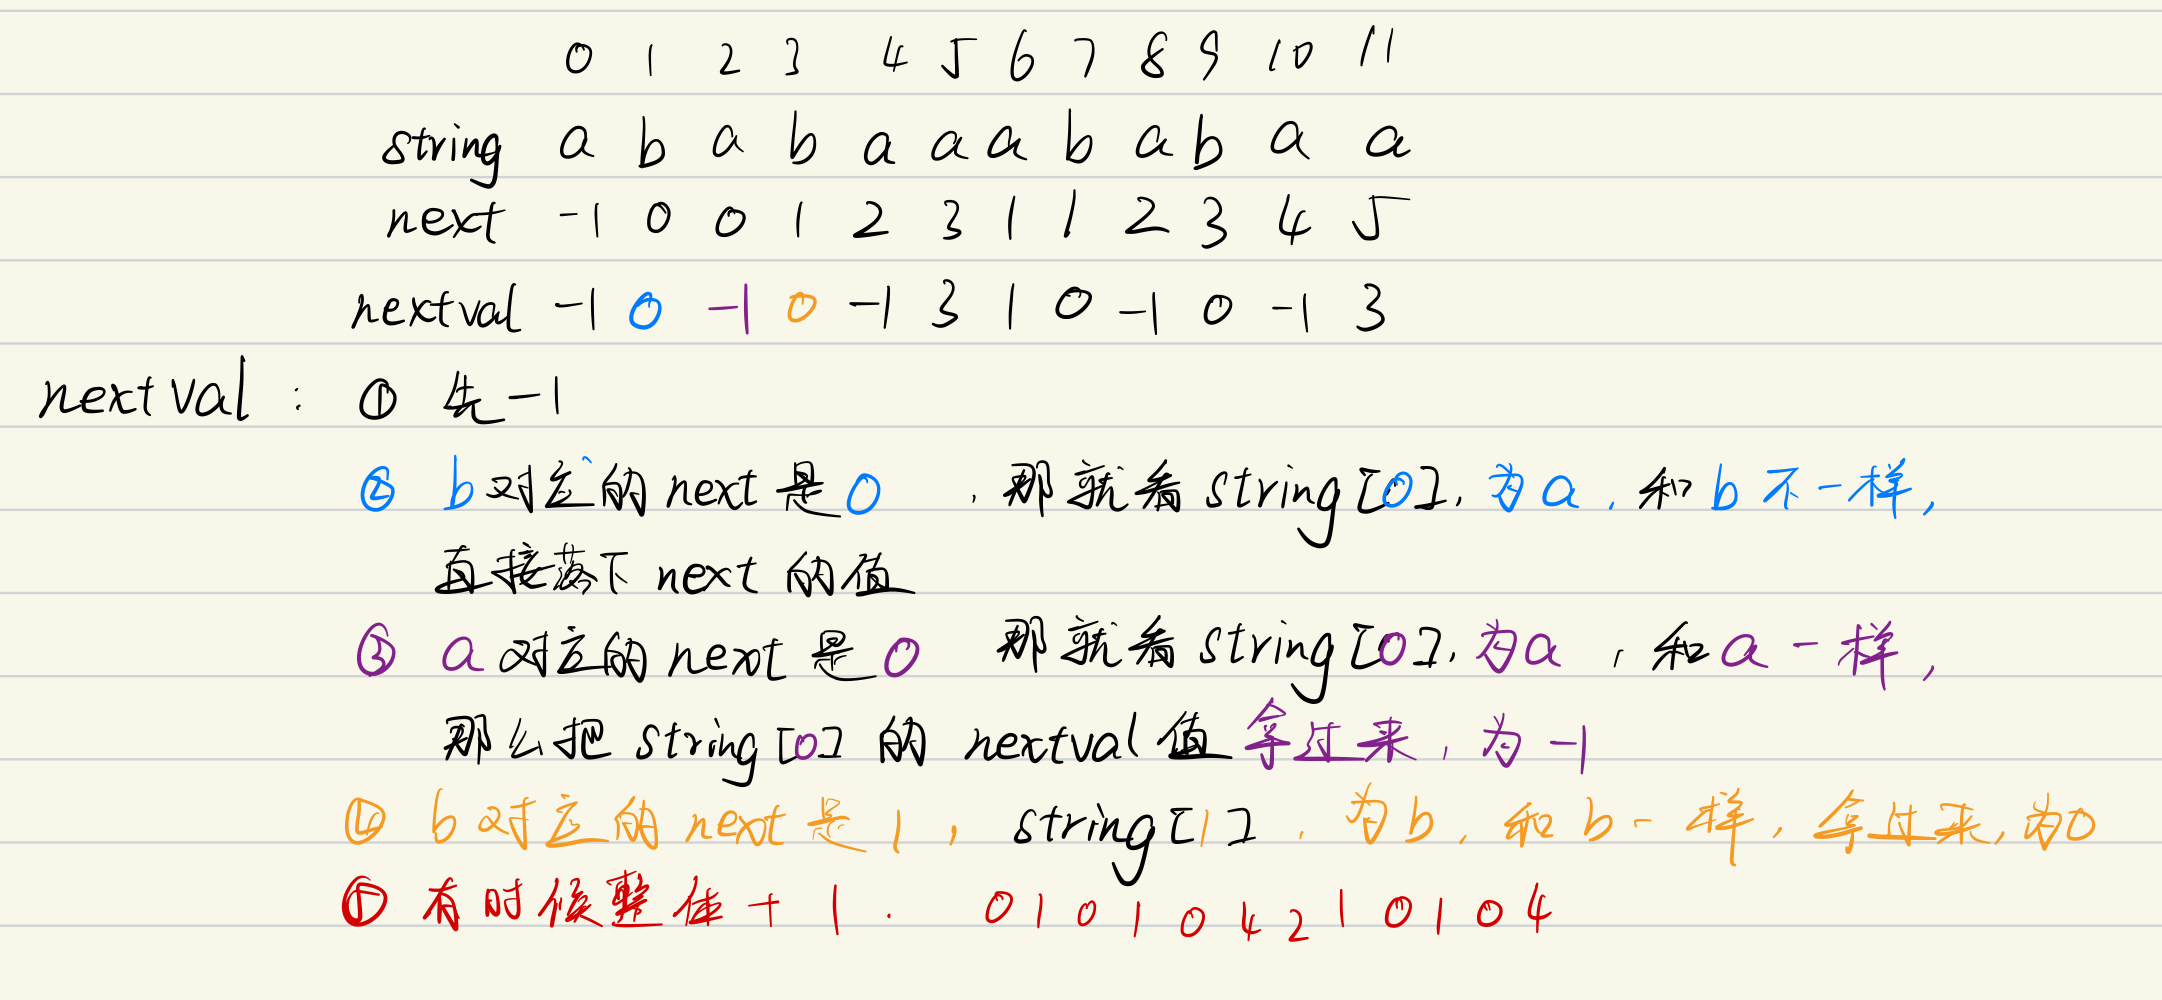 0 1 2 3 4 5 6 7 8 9 10 11
string a b a b a a a b a b a a
next -1 0 0 1 2 3 1 1 2 3 4 5
nextval -1 0 -1 0 -1 3 1 0 -1 0 -1 3
nextval : ① 先-1
② b对应的next是0 , 那就看string[0], 为a, 和b不一样,
直接落下next的值
③ a对应的next是0 那就看string[0], 为a , 和a一样,
那么把string[0]的 nextval值拿过来, 为-1
④ b对应的next是1 , string[1] , 为b, 和b一样, 拿过来, 为0
⑤ 有时候整体+1. 0 1 0 1 0 4 2 1 0 1 0 4